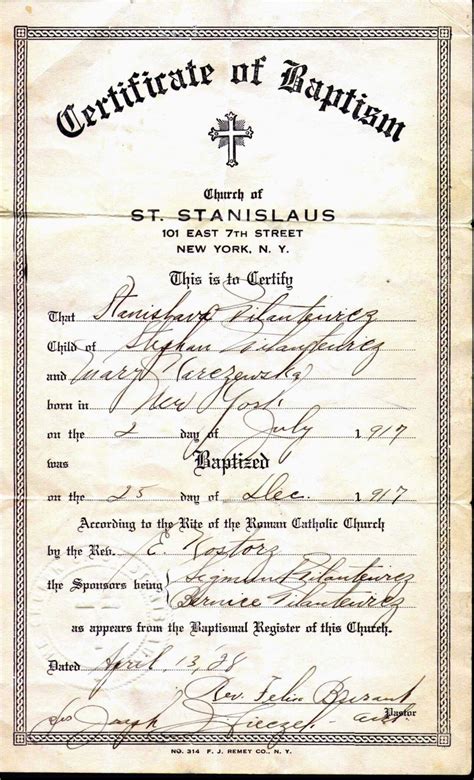 Certificate of Baptism
Church of
ST. STANISLAUS
101 EAST 7TH STREET
NEW YORK, N. Y.
This is to Certify
That Stanislava Pilantewicz
Child of Stephan Pilantewicz
and Mary Karczewska
born in New York
on the 2 day of July 1917
was Baptized
on the 25 day of Dec. 1917
According to the Rite of the Roman Catholic Church
by the Rev. E. Kostorz
the Sponsors being Sigmund Pilantewicz
Bernice Pilantewicz
as appears from the Baptismal Register of this Church.
Dated April 13, '28
Rev. Felix Burant
Pastor
Joseph
NO. 314 F. J. REMEY CO., N. Y.